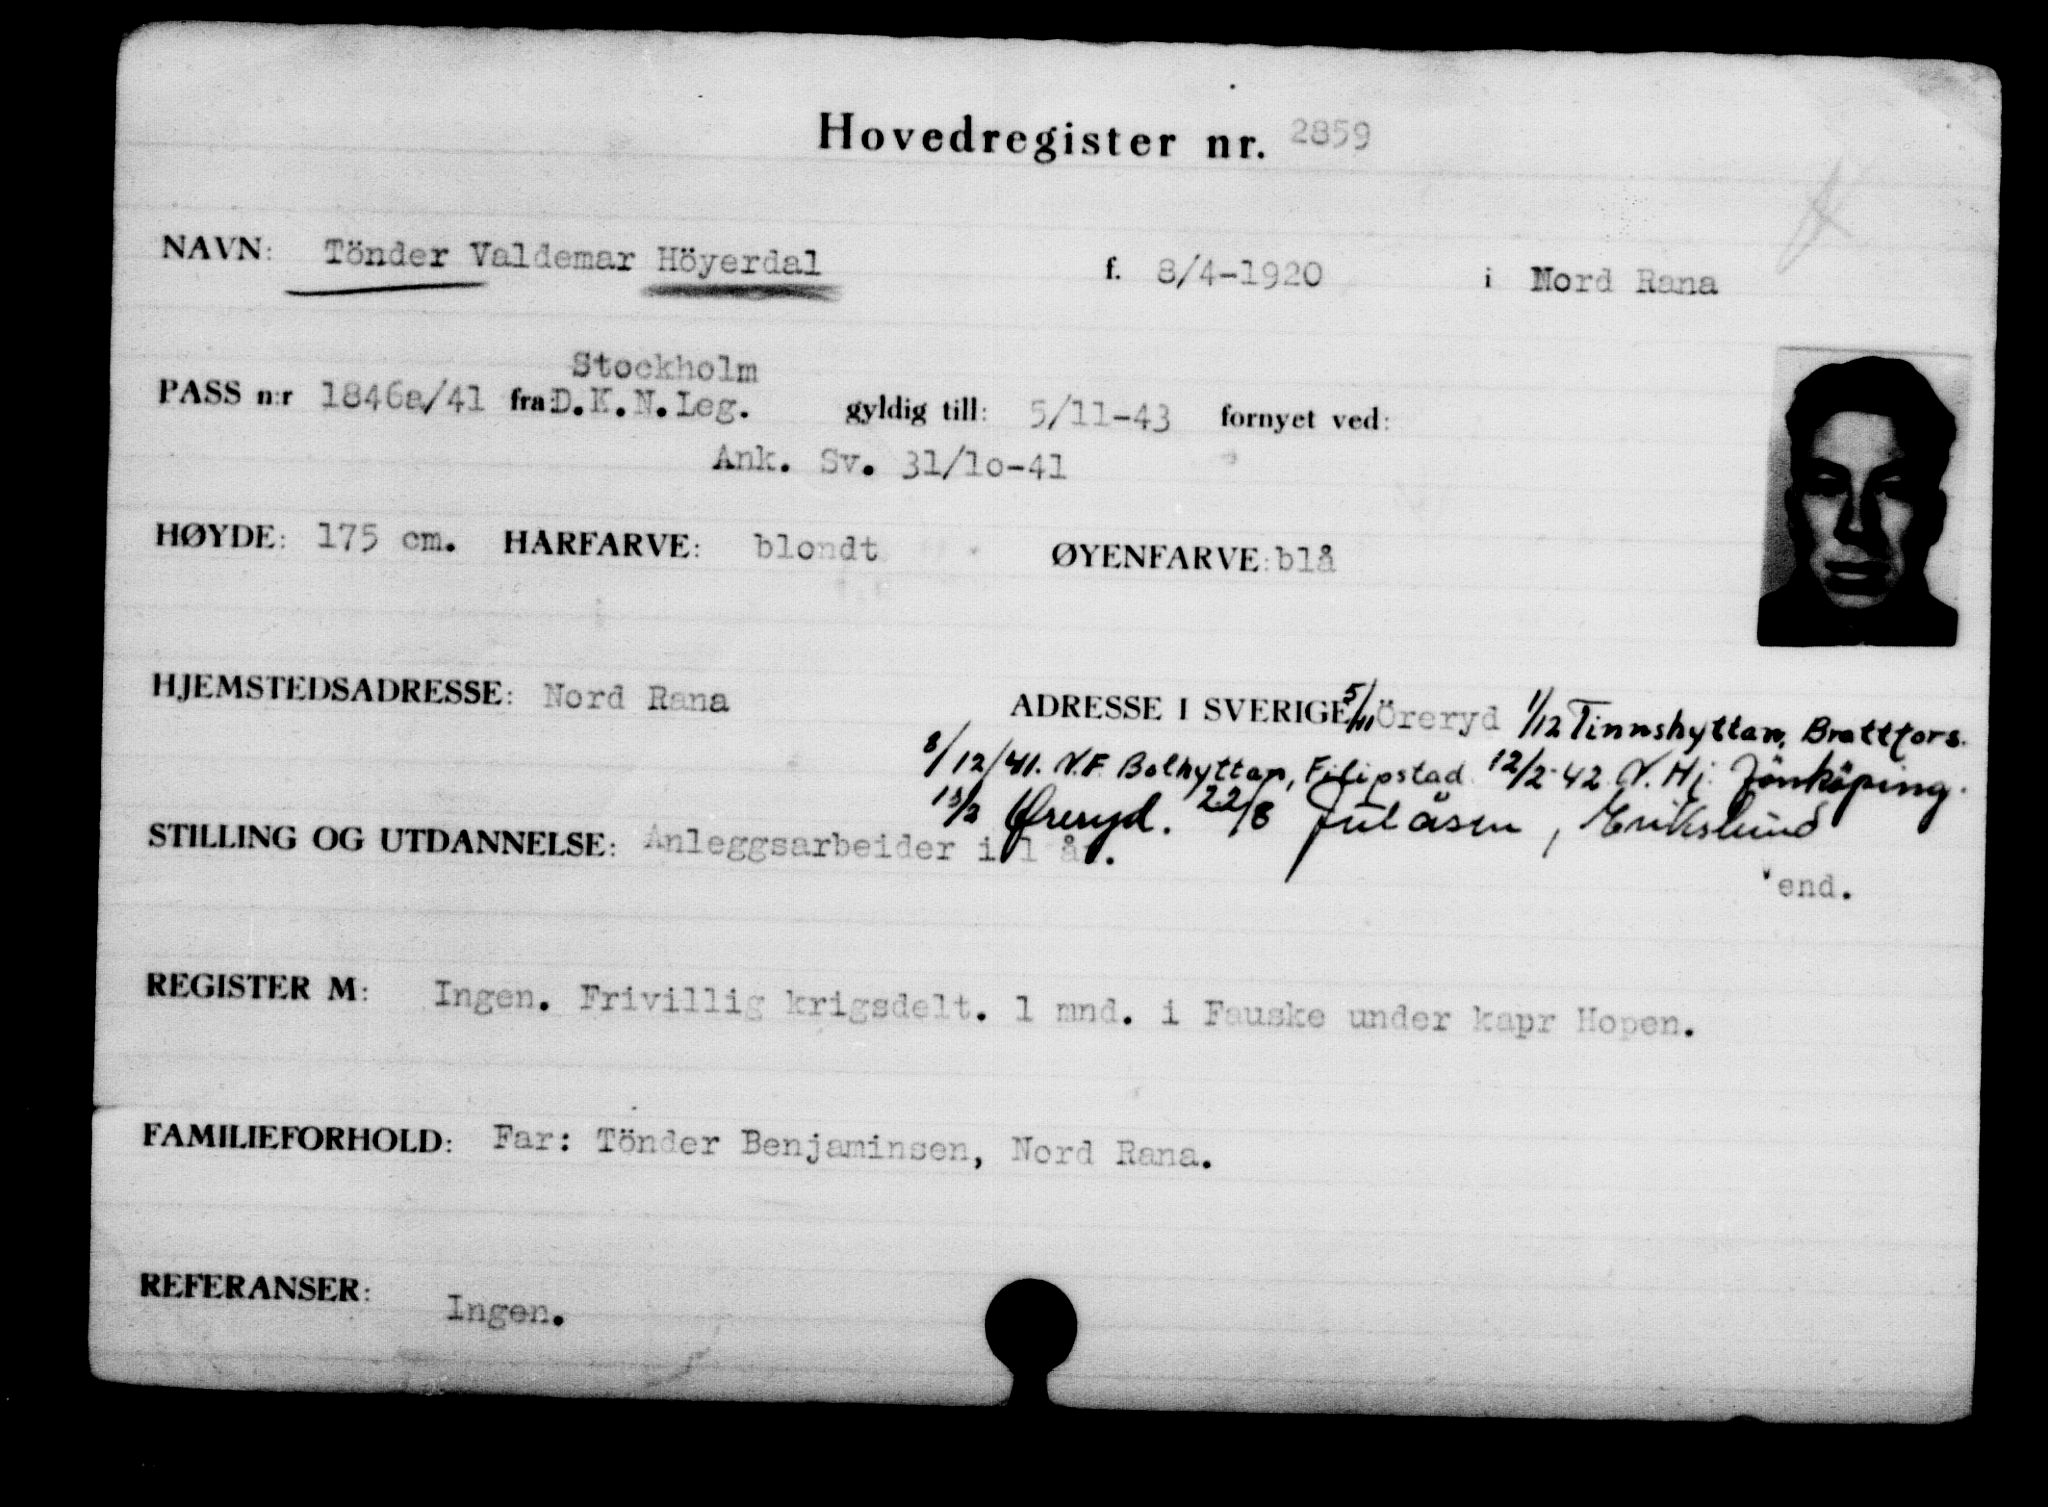 Hovedregister nr. 2859
NAVN: Tönder Valdemar Höyerdal f. 8/4-1920 i Nord Rana
Stockholm
PASS n:r 1846a/41 fra: D.K.N.Leg. gyldig till: 5/11-43 fornyet ved:
Ank. Sv. 31/10-41
HØYDE: 175 cm. HÅRFARVE: blondt ØYENFARVE: blå
HJEMSTEDSADRESSE: Nord Rana ADRESSE I SVERIGE: 5/11 Öreryd 1/12 Tinnshyttan, Brattfors.
8/12/41. V.F. Bolhyttan, Filipstad 12/2-42 N. Hj. Jönköping.
13/2 Øreryd. 22/8 Julåsen, Erikslund
STILLING OG UTDANNELSE: Anleggsarbeider i 1 år.
vend.
REGISTER M: Ingen. Frivillig krigsdelt. 1 mnd. i Fauske under kapr Hopen.
FAMILIEFORHOLD: Far: Tönder Benjaminsen, Nord Rana.
REFERANSER: Ingen.